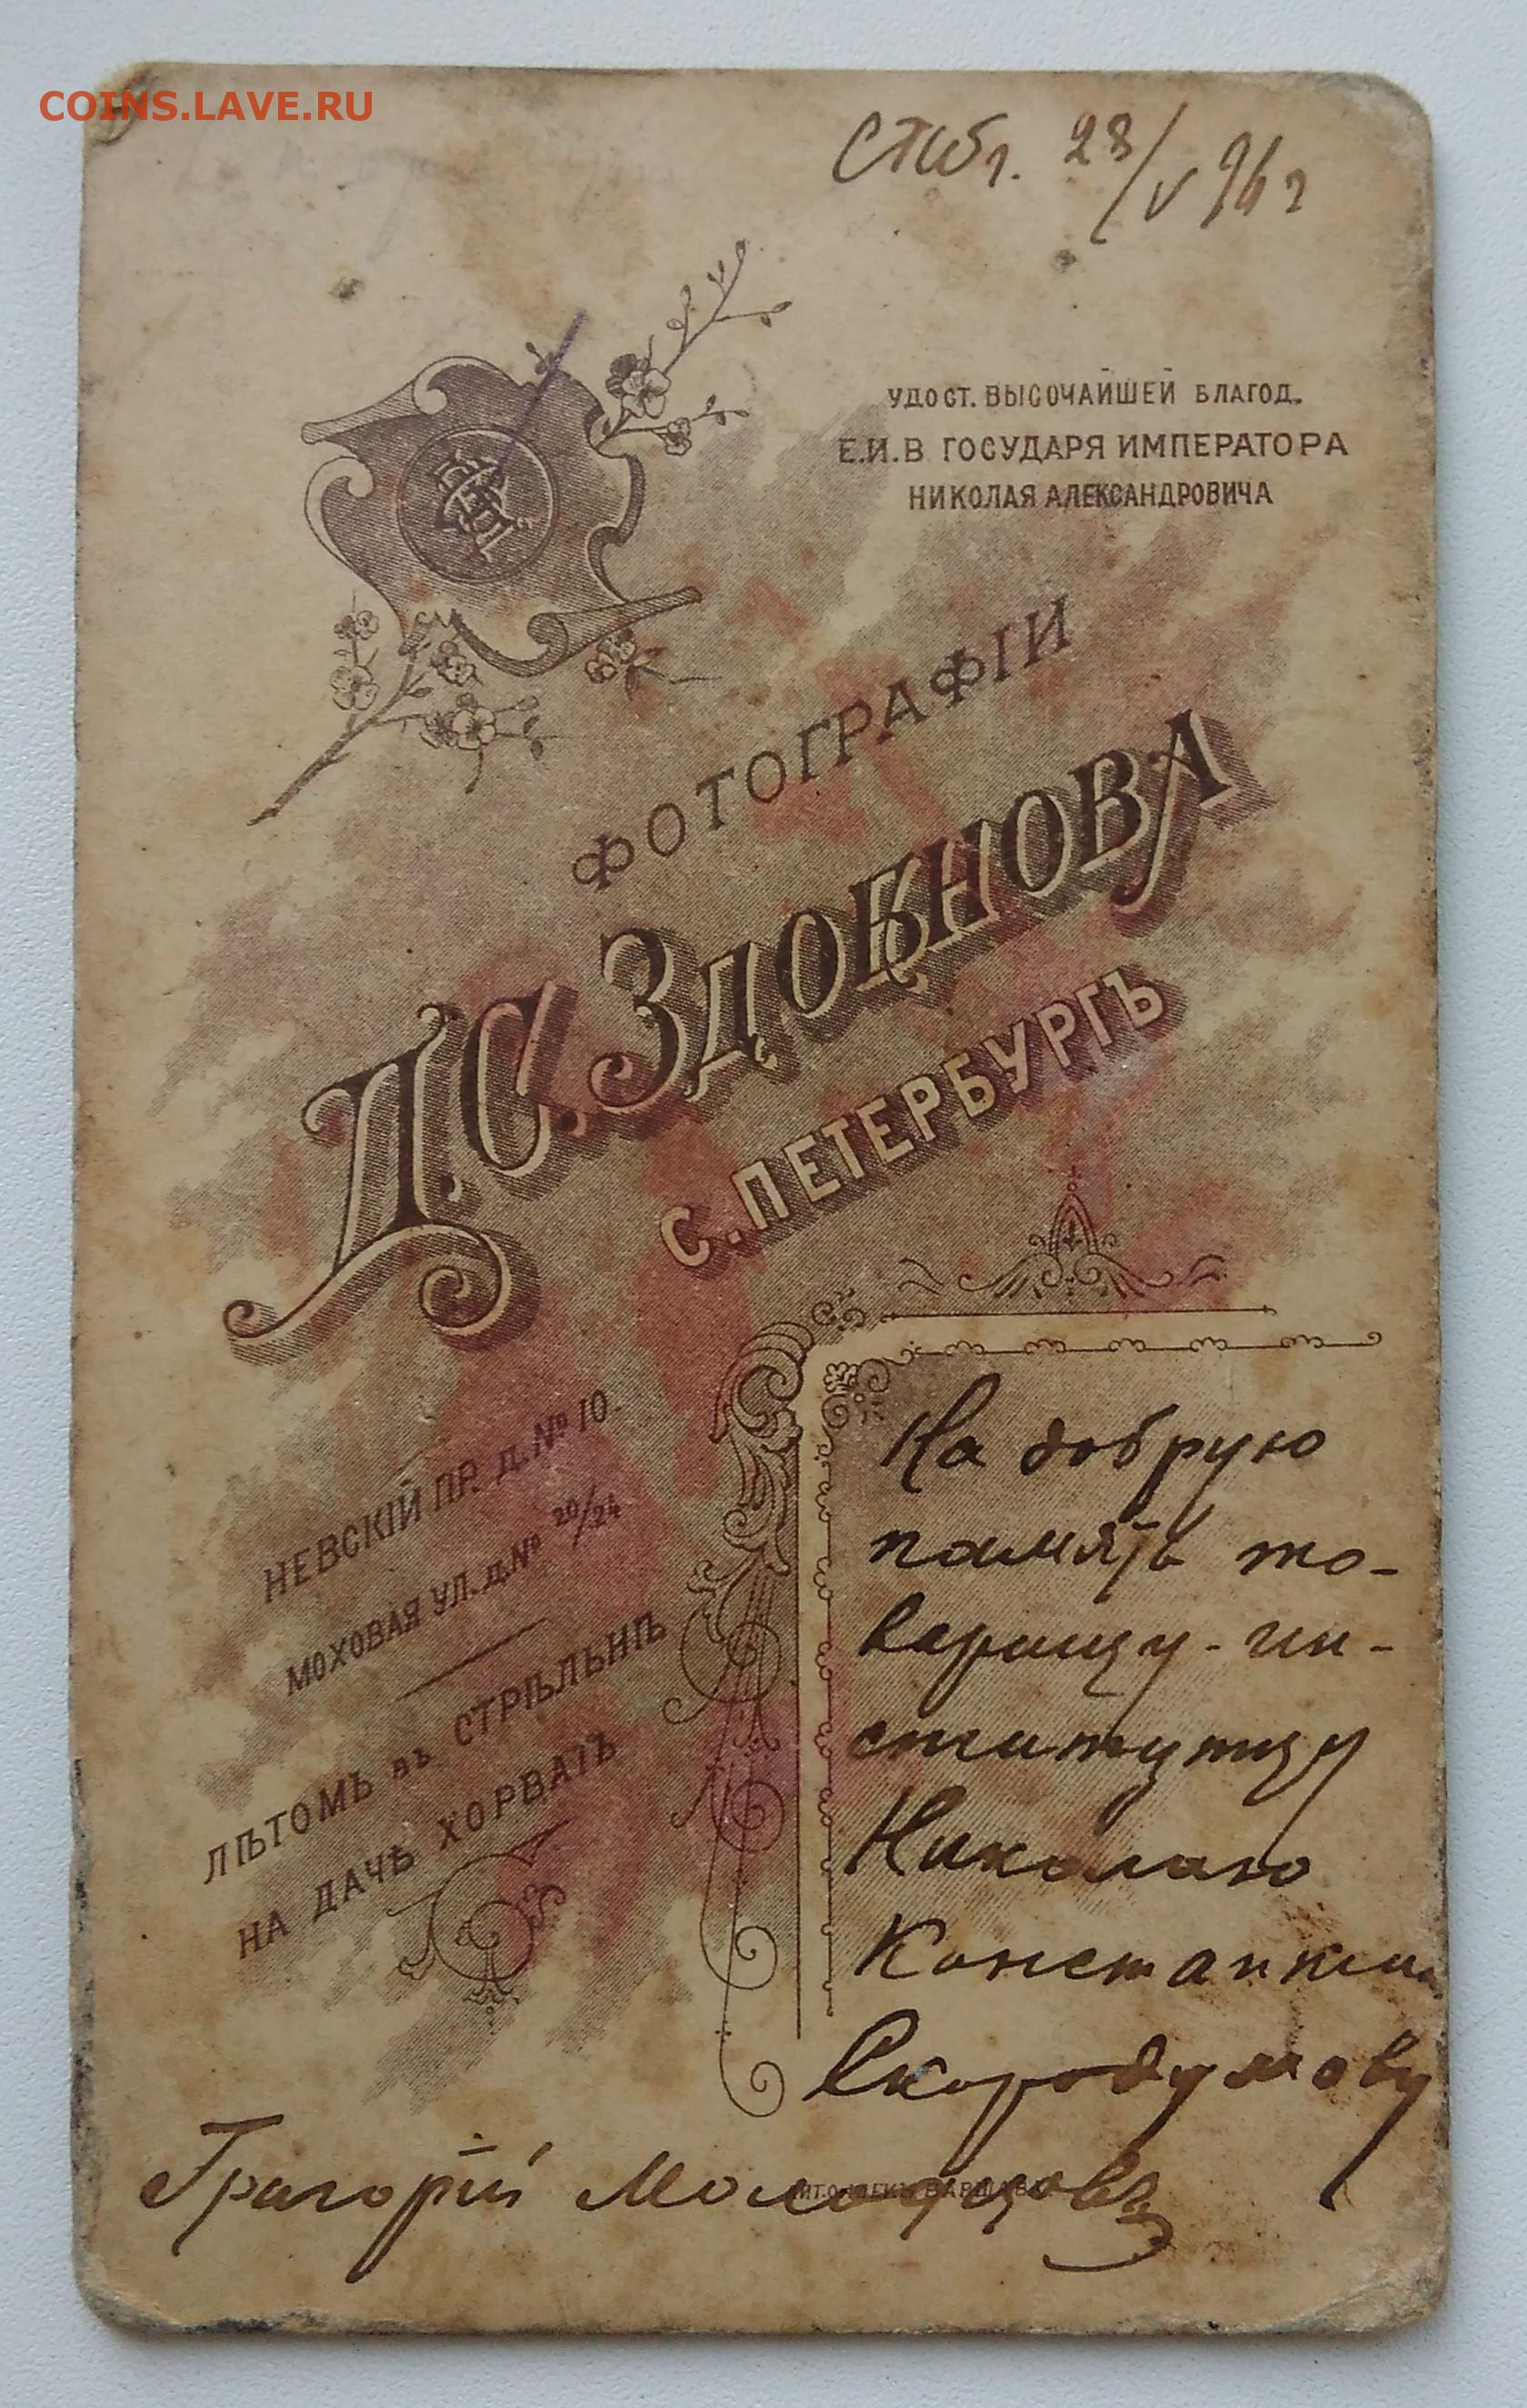 COINS.LAVE.RU
СПбг. 28/V 96 г
УДОСТ. ВЫСОЧАЙШЕЙ БЛАГОД.
Е.И.В ГОСУДАРЯ ИМПЕРАТОРА
НИКОЛАЯ АЛЕКСАНДРОВИЧА
ФОТОГРАФІИ
Д.С. ЗДОБНОВА
С. ПЕТЕРБУРГЪ
НЕВСКІЙ ПР. Д. № 10.
МОХОВАЯ УЛ. Д. № 20/24
ЛѢТОМЪ въ СТРѢЛЬНѢ
НА ДАЧѢ ХОРВАТЪ
На добрую
память то-
варищу-ин-
ститутцу
Николаю
Скородумову
Григорій Молодцовъ